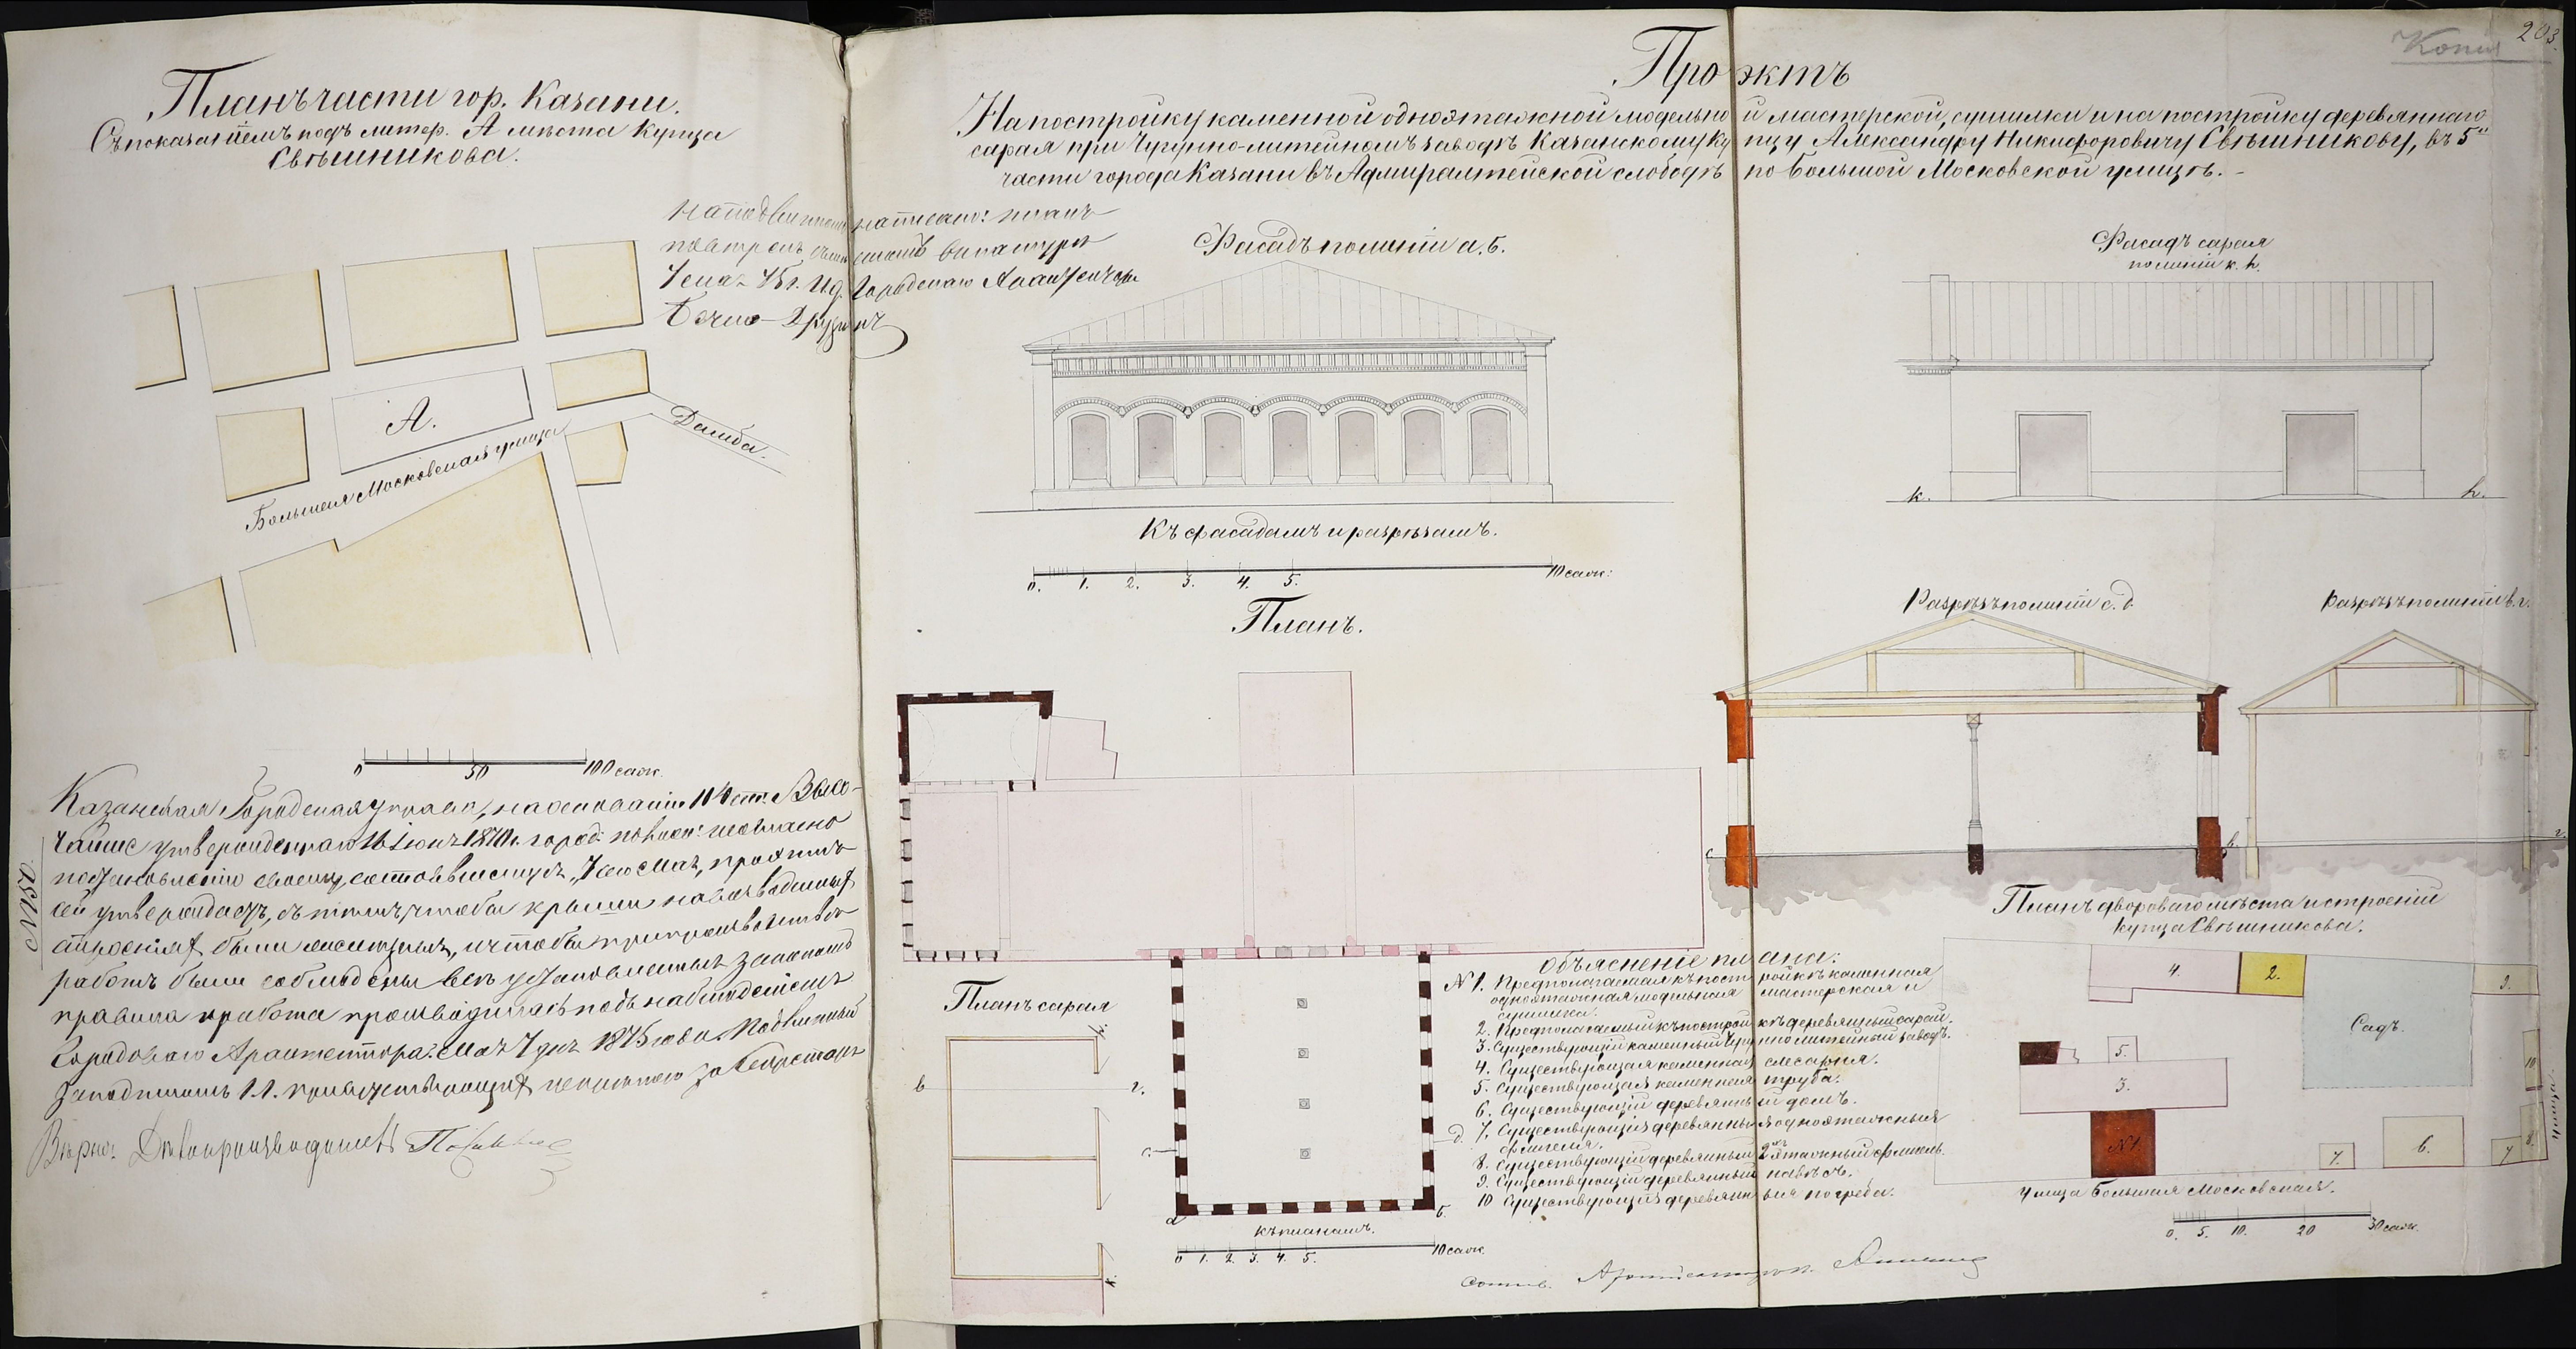 Планъ части гор. Казани.
Съ показаніемъ подъ литер. А мѣста Купца
Свѣшникова.
А.
Большая Московская улица
Дамба.
0 50 100 саж.
На подлинномъ написано: планъ
Городскаго Архитектора
Казанская Городская управа, на основаніи 114 ст. Высо-
чайше утвержденнаго 16 Іюня 1870 г. город. полож. согласно
постановленію своему, состоявшемуся 7 сего Мая, проэктъ
сей утверждаетъ, съ тѣмъ, чтобы крыши на возводимыхъ
строеніяхъ были и чтобы при производствѣ
работъ были соблюдены всѣ установленныя закономъ
правила и работа производилась подъ наблюденіемъ
Городоваго Архитектора. Мая 7 дня 1875 года. Подлинный
за подписомъ за Секретаря
№ 150.
Вѣрно: Дѣлопроизводитель
Копія
203.
Проэктъ
На постройку каменной одноэтажной модельной мастерской, сушилки и на постройку деревяннаго
сарая при Чугунно-литейномъ заводѣ Казанскому Купцу Александру Никифоровичу Свѣшникову, въ 5й
части города Казани въ Адмиралтейской слободѣ по Большой Московской улицѣ.
Фасадъ по линіи а. б.
Фасадъ сарая
по линіи к. h.
к. h.
Къ фасадамъ и разрѣзамъ.
0. 1. 2. 3. 4. 5. 10 саж:
Планъ.
Разрѣзъ по линіи с. d.
Разрѣзъ по линіи в. г.
Планъ сарая
в г.
с d.
а б.
Къ планамъ.
0 1. 2. 3. 4. 5. 10 саж.
Объясненіе плана:
№ 1. Предполагаемая къ постройкѣ каменная
одноэтажная модельная мастерская и
сушилка.
2. Предполагаемый къ постройкѣ деревянный сарай.
3. Существующій каменный Чугуннолитейный заводъ.
4. Существующая каменная слесарня.
5. Существующая каменная труба.
6. Существующій деревянный домъ.
7. Существующія деревянныя одноэтажныя
флигеля.
8. Существующій деревянный 2хъ этажный флигель.
9. Существующій деревянный навѣсъ.
10 Существующія деревянныя погреба.
Планъ двороваго мѣста и строеній
купца Свѣшникова.
4. 2. 9.
Садъ.
5.
3.
10
№1
7. 6. 7 8.
улица
Улица Большая Московская.
0. 5. 10. 20 30 саж.
Состав. Архитекторъ